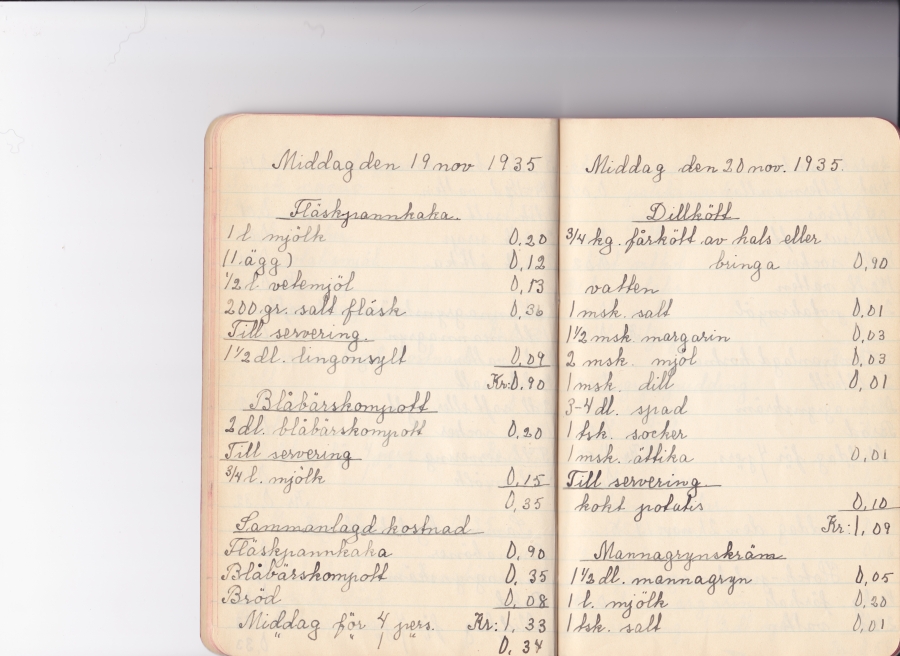 Middag den 19 nov 1935
Fläskpannkaka.
1 l. mjölk 0,20
(1 ägg) 0,12
1/2 l. vetemjöl 0,13
200 gr. salt fläsk 0,36
Till servering.
1 1/2 dl. lingonsylt 0,09
Kr: 0,90
Blåbärskompott
2 dl. blåbärskompott 0,20
Till servering
3/4 l. mjölk 0,15
0,35
Sammanlagd kostnad
Fläskpannkaka 0,90
Blåbärskompott 0,35
Bröd 0,08
Middag för 4 pers. Kr: 1,33
" " 1 " 0,34
Middag den 20 nov. 1935.
Dillkött
3/4 kg. fårkött av hals eller
bringa 0,90
vatten
1 msk. salt 0,01
1 1/2 msk. margarin 0,03
2 msk. mjöl 0,03
1 msk. dill 0,01
3-4 dl. spad
1 tsk. socker
1 msk. ättika 0,01
Till servering.
kokt potatis 0,10
Kr: 1,09
Mannagrynskräm
1 1/2 dl. mannagryn 0,05
1 l. mjölk 0,20
1 tsk. salt 0,01